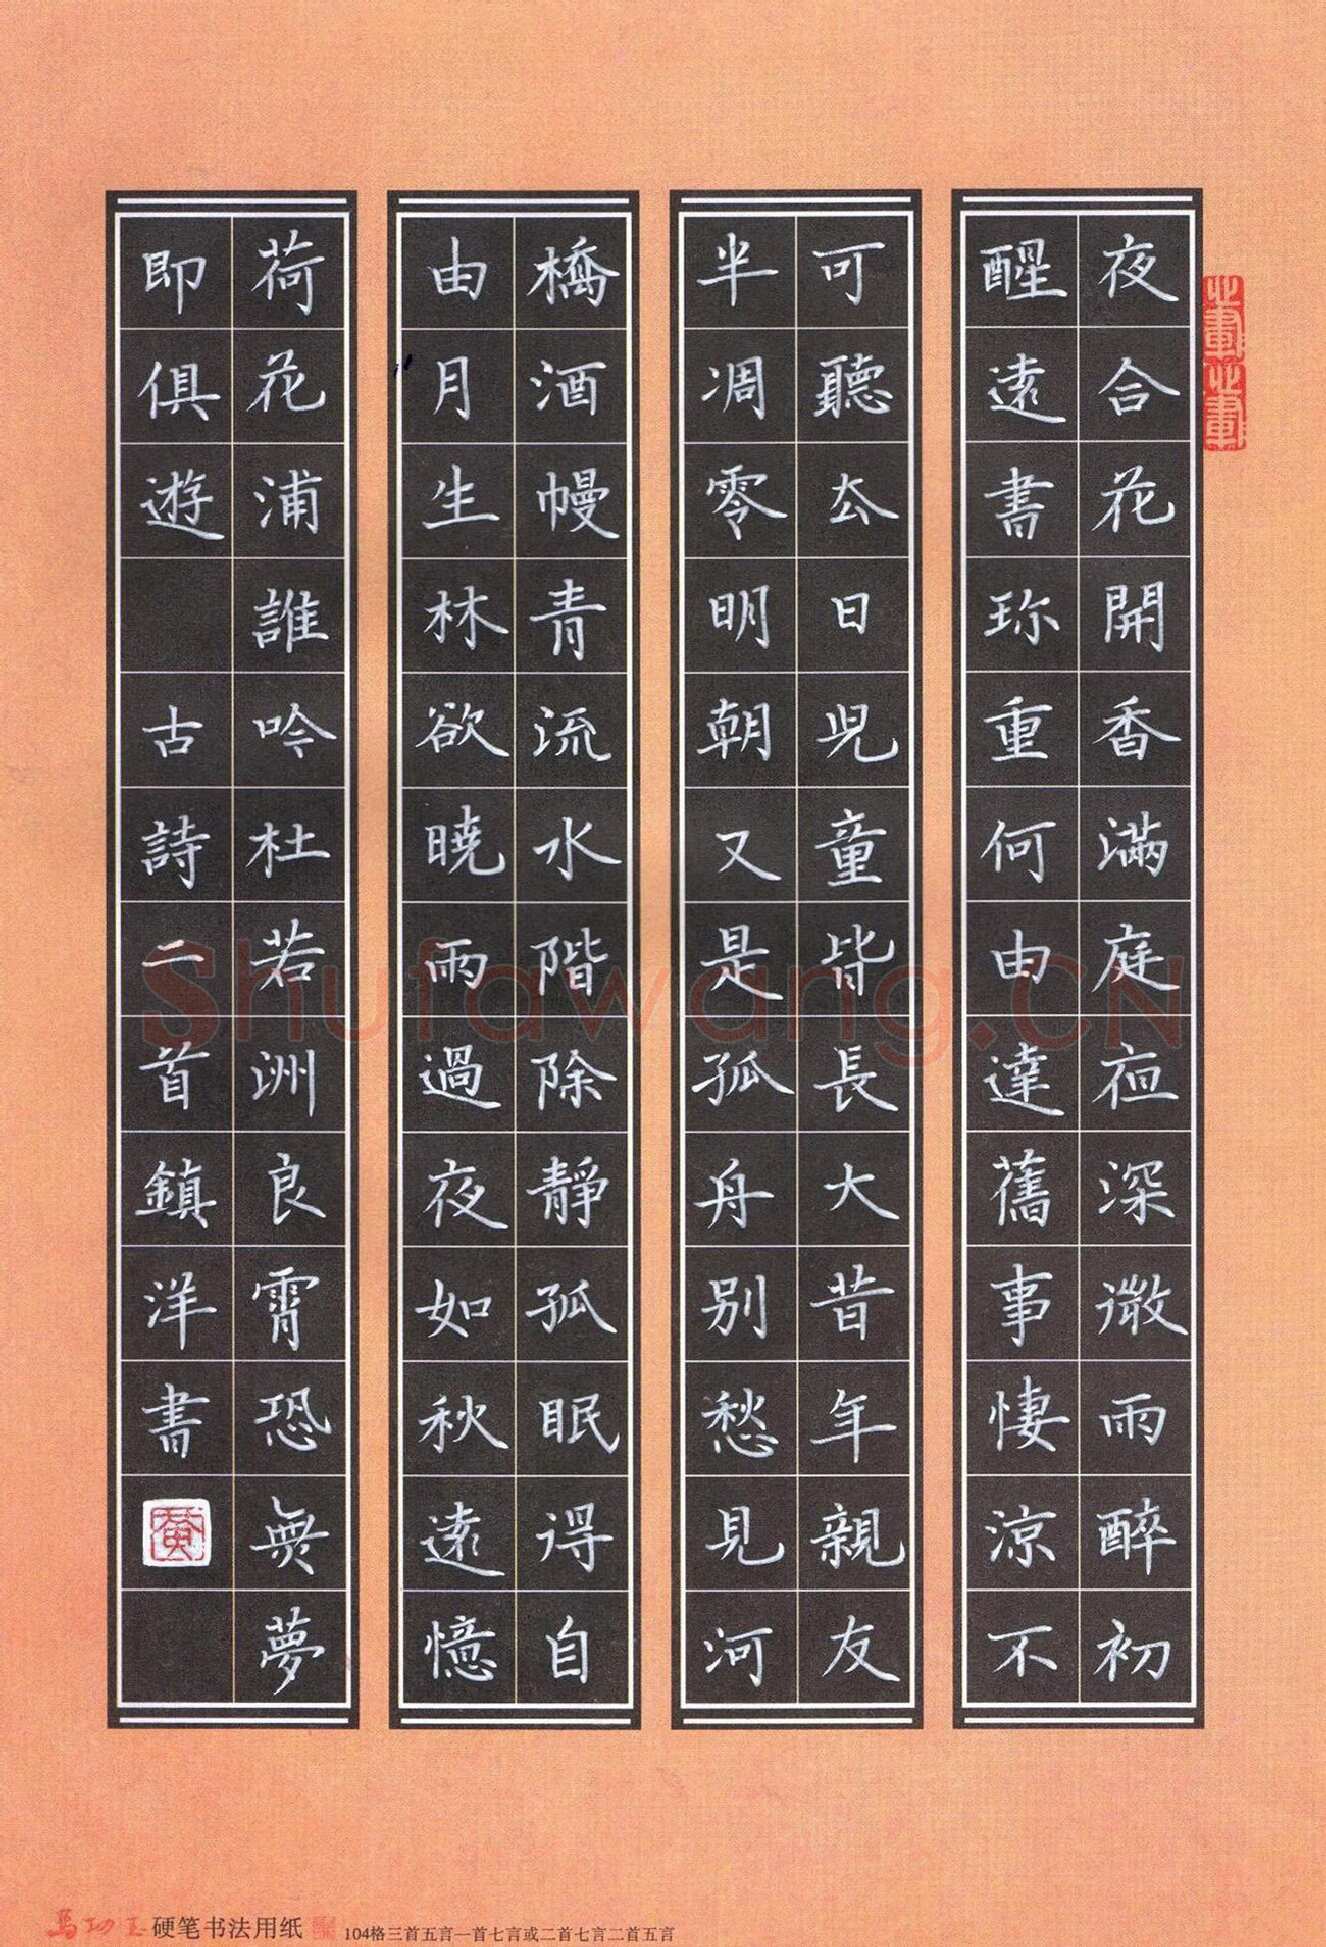 夜合花開香滿庭亱深微雨醉初
醒遠書珎重何由達舊事悽涼不
可聽厺日兒童皆長大昔年親友
半凋零明朝又是孤舟別愁見河
橋酒幔青流水階除靜孤眠得自
由月生林欲曉雨過夜如秋遠憶
荷花浦誰吟杜若洲良霄恐無夢
即俱遊 古詩二首鎮洋書
Shufawang.CN
硬笔书法用纸 104格三首五言一首七言或二首七言二首五言